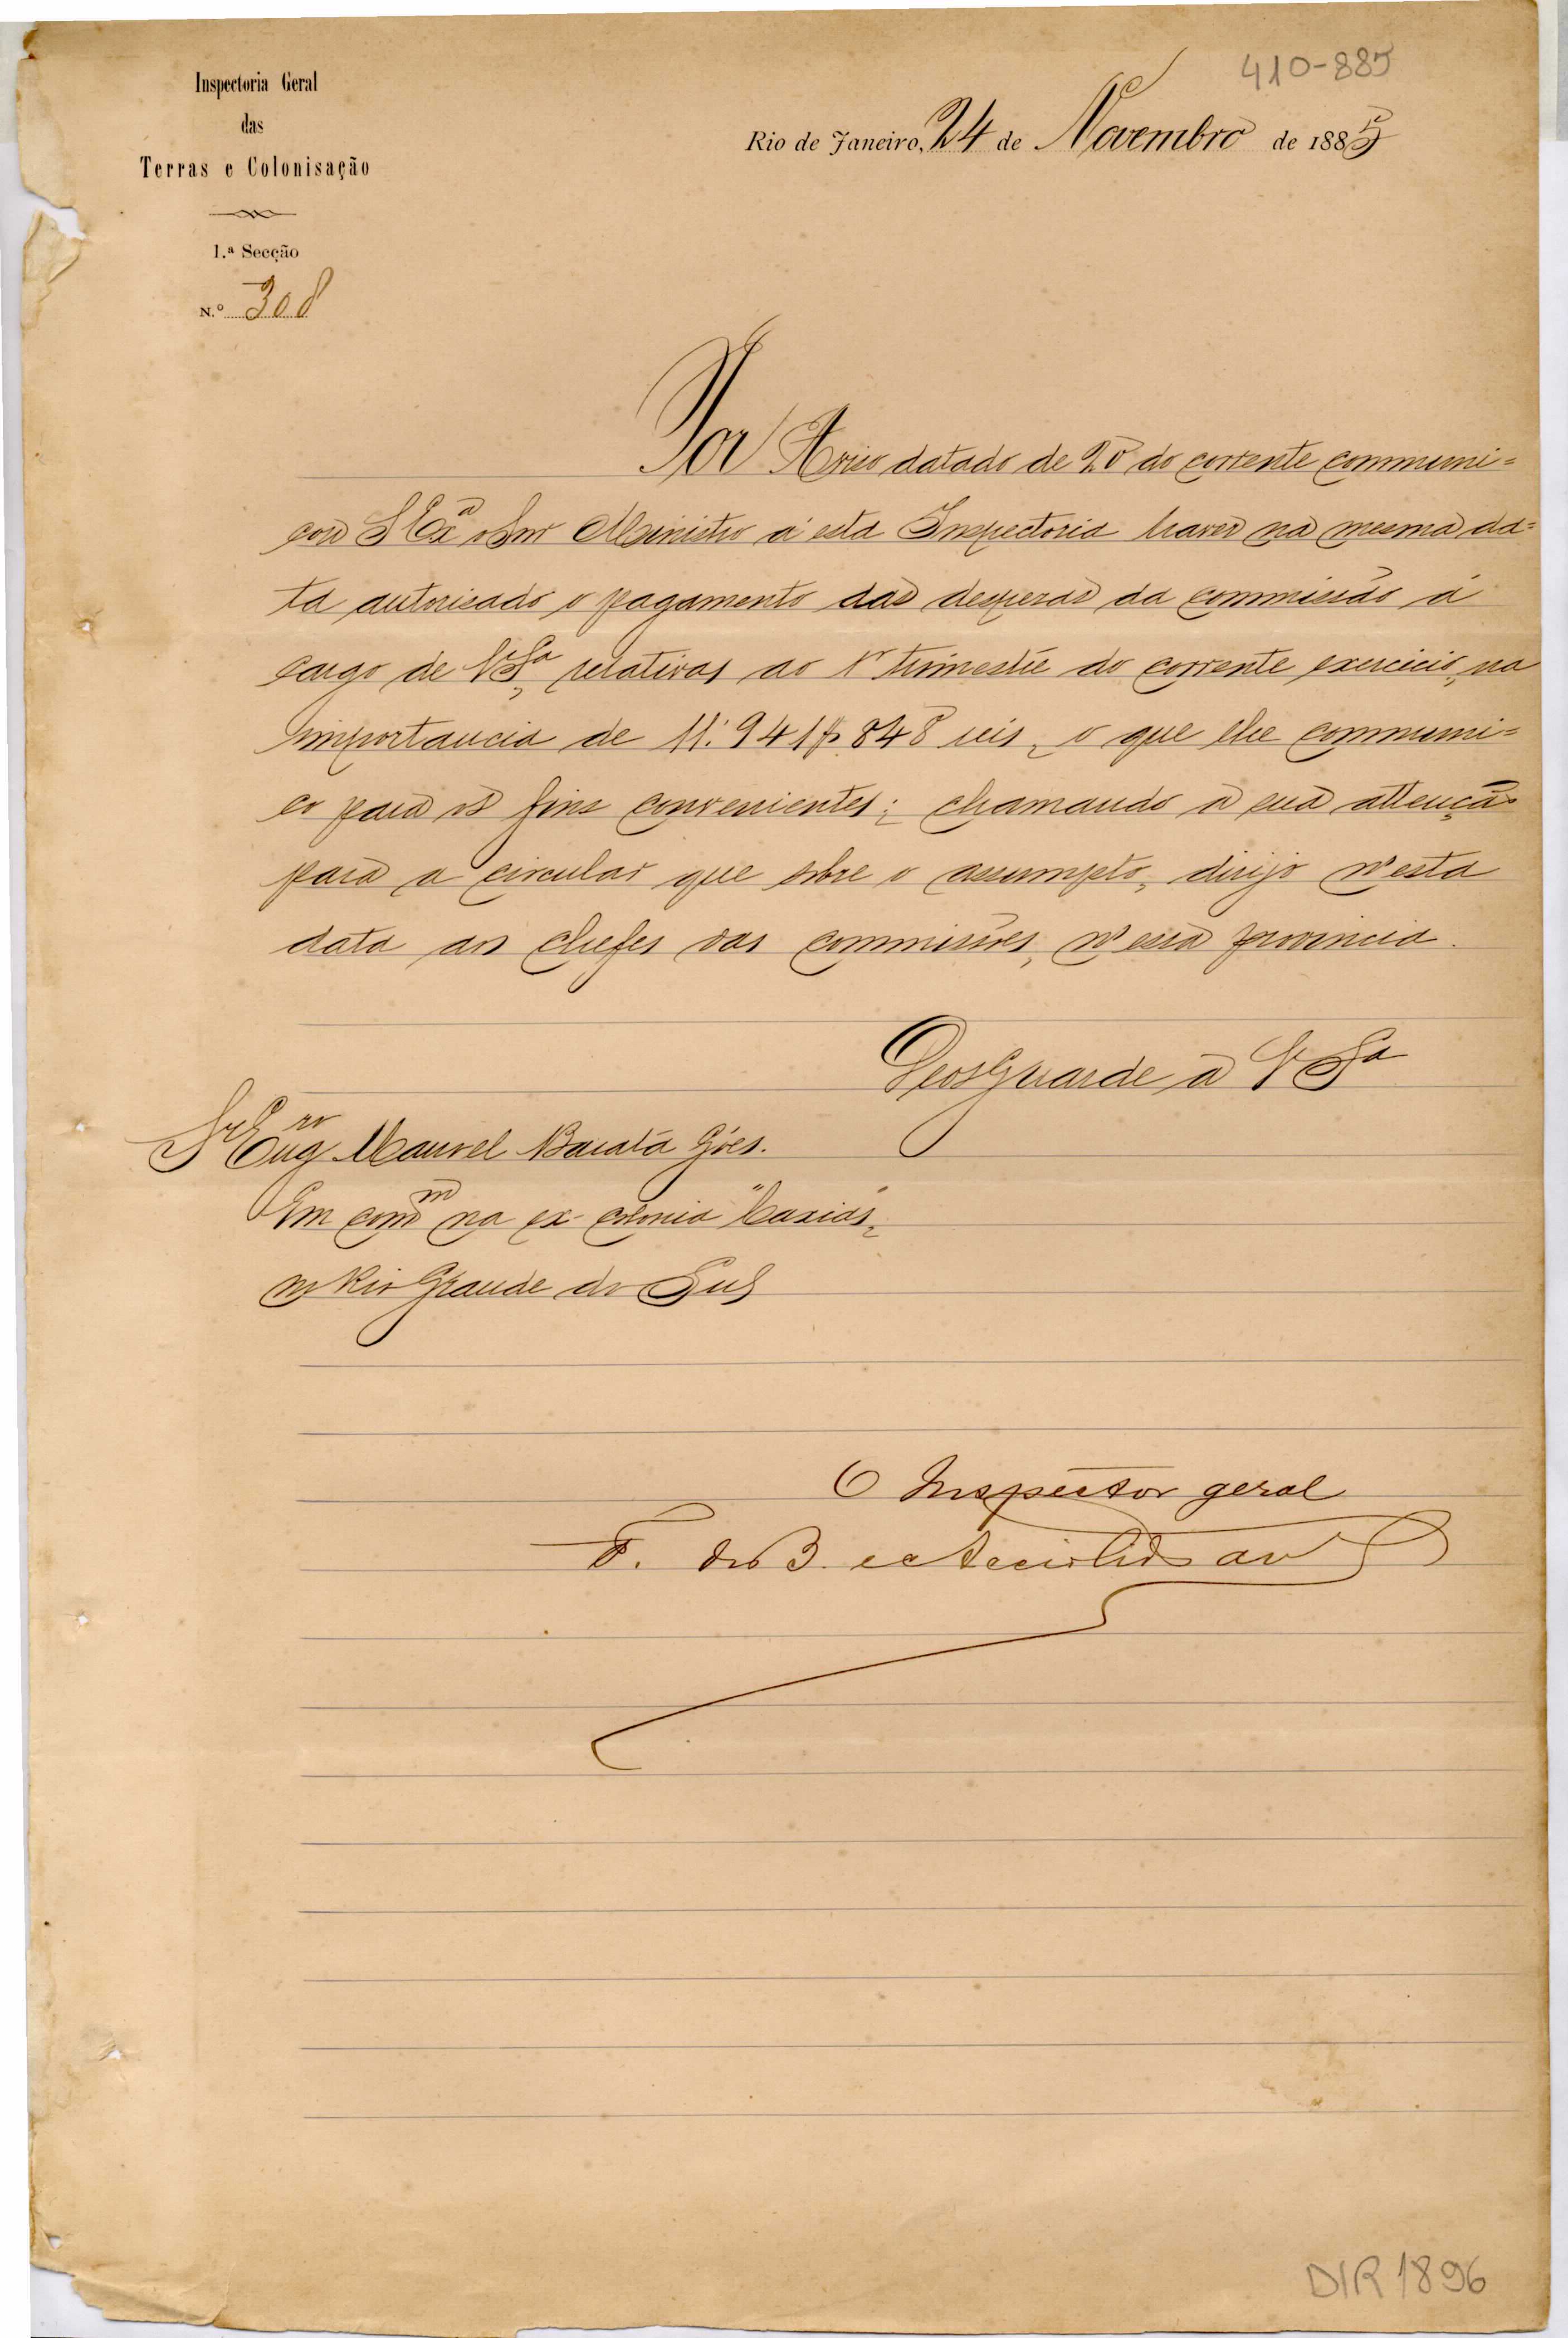 410-885
Inspectoria Geral
das
Terras e Colonisação
1.ª Secção
N.º 308
Rio de Janeiro, 24 de Novembro de 1885
Por Aviso datado de 20 do corrente communi=
cou S Exª o Snr Ministro á esta Inspectoria haver na mesma da=
ta autorisado o pagamento das despezas da commissão á
cargo de VSª, relativas ao 1º trimestre do corrente exercicio, na
importancia de 11:941$848 reis, o que lhe communi=
co para os fins convenientes; chamando a sua attenção
para a circular que sobre o assumpto, dirijo n'esta
data aos chefes das commissões, n'essa provincia.
Deos Guarde a VSª
Sr Engro Manoel Barata Góes.
Em comm na ex-colonia "Caxias",
no Rio Grande do Sul
O Inspector geral
F. de B. e Accioli de
DIR 1896